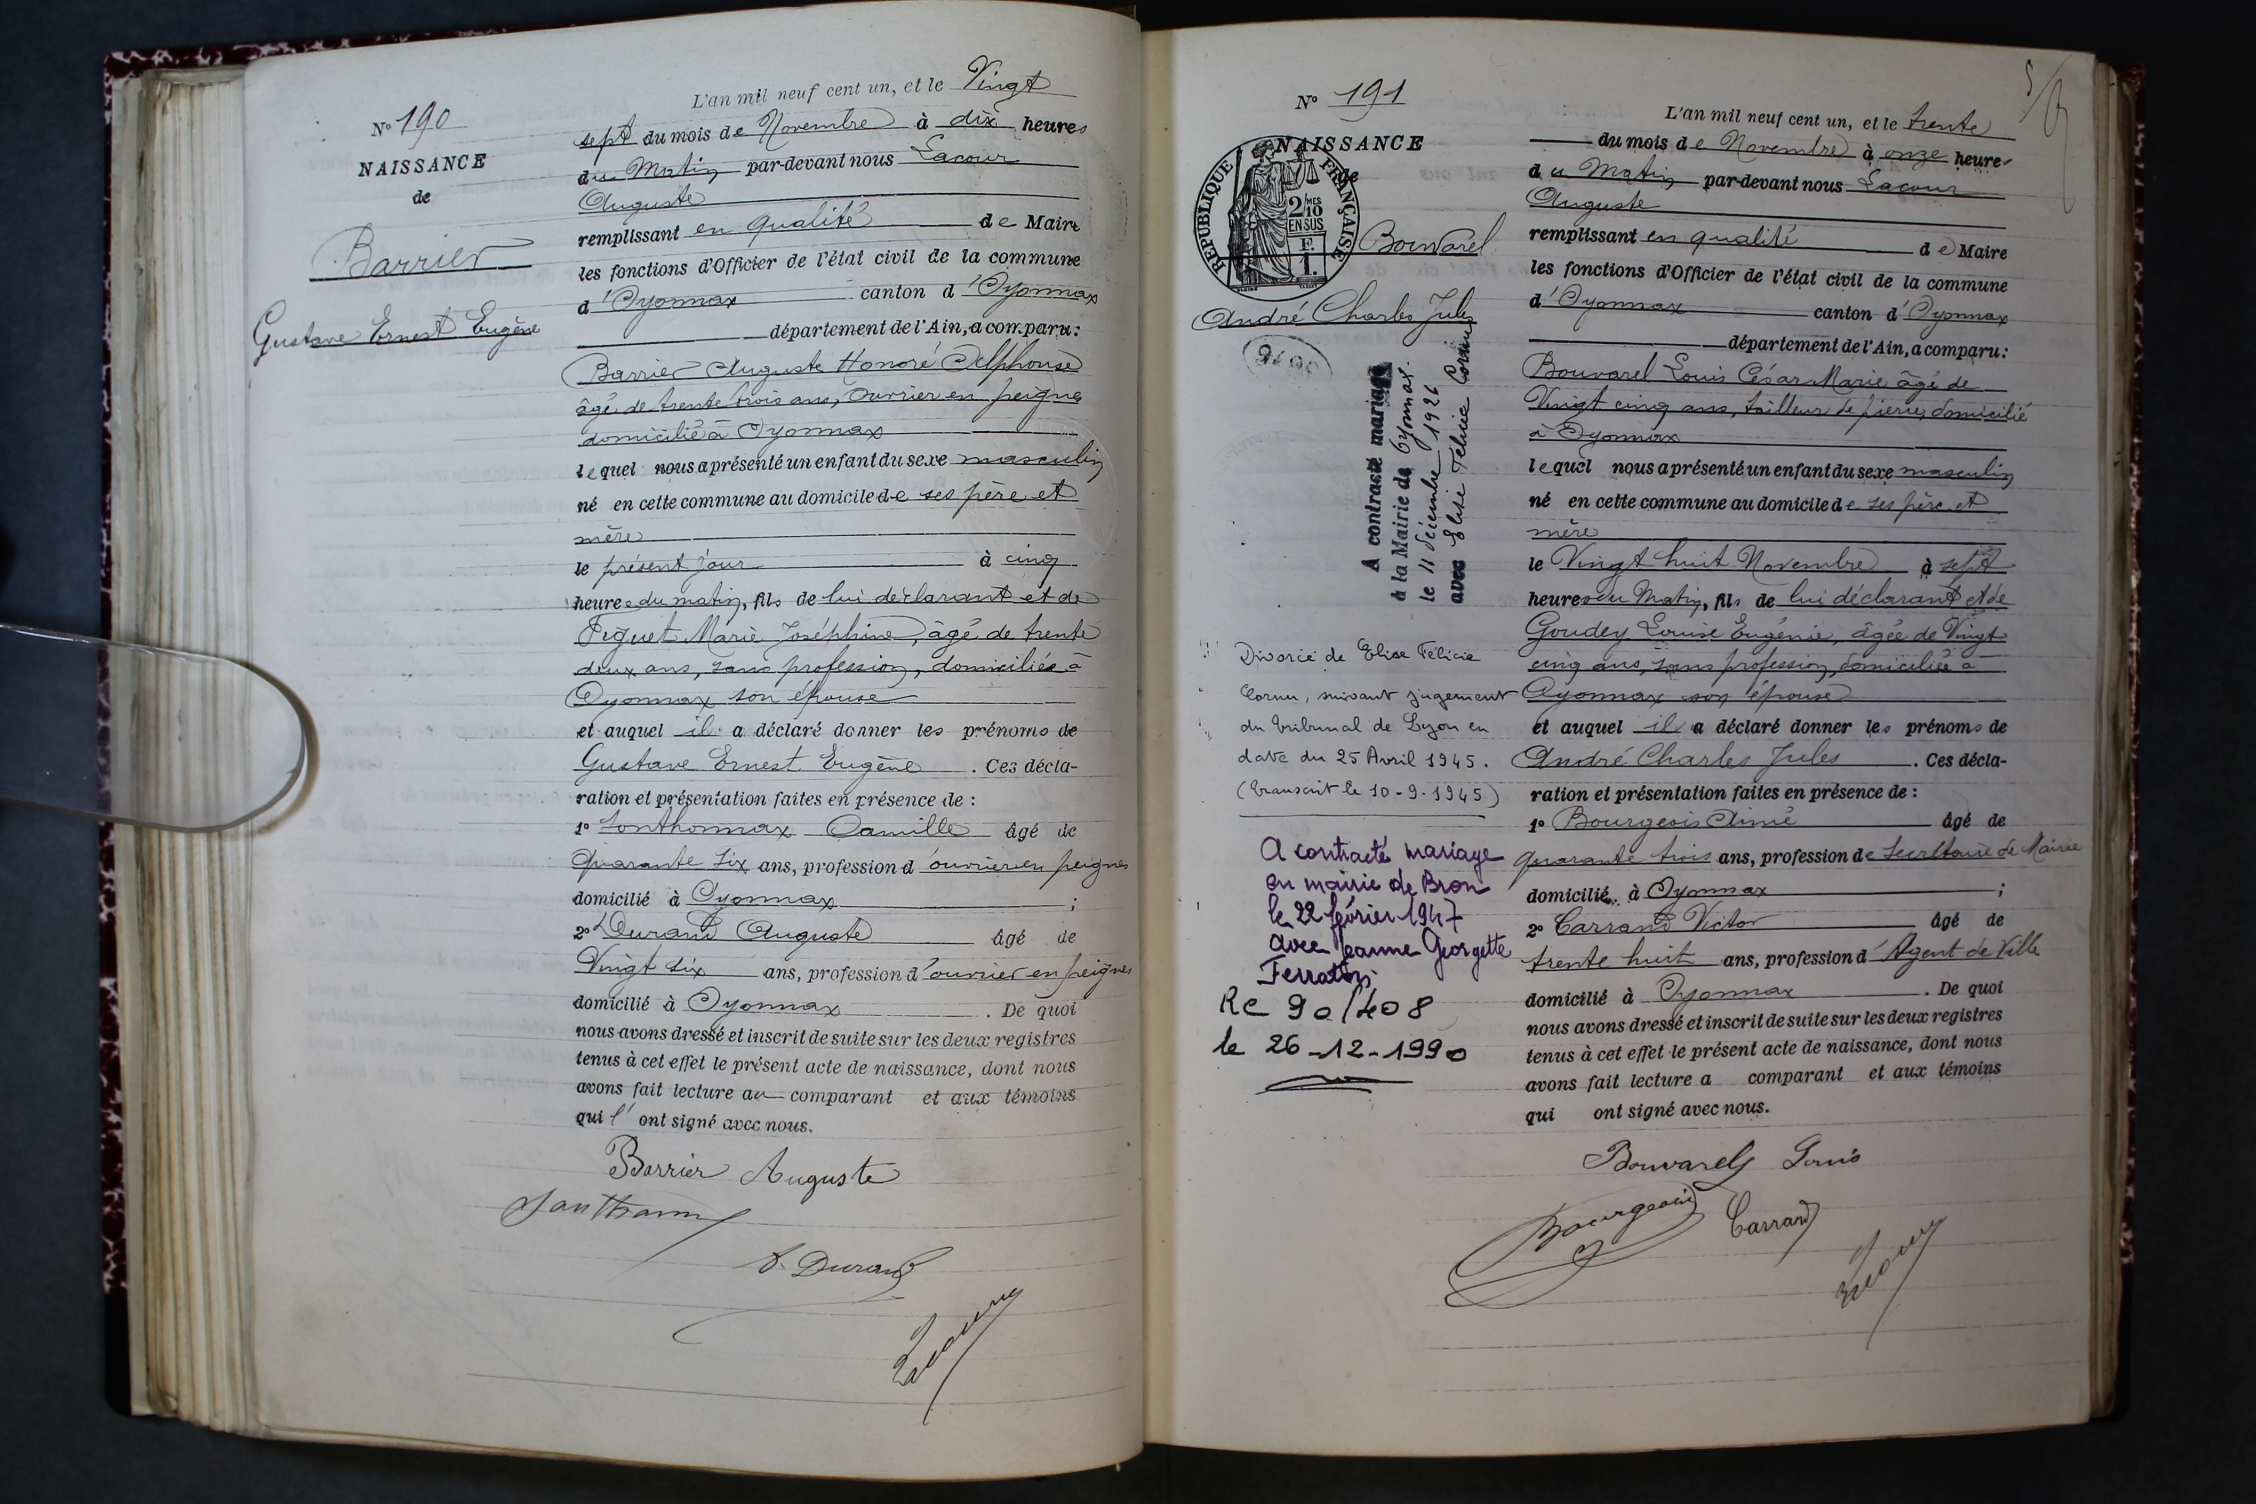 L'an mil neuf cent un, et le Vingt
N° 190
sept du mois de Novembre à dix heures
NAISSANCE
du Matin par-devant nous Lacour
de
Auguste
remplissant en qualité de Maire
Barrier
les fonctions d'Officier de l'état civil de la commune
d'Oyonnax canton d'Oyonnax
Gustave Ernest Eugène
département de l'Ain, a comparu:
Barrier Auguste Honoré Alphonse
âgé de trente trois ans, ouvrier en peignes
domicilié à Oyonnax
lequel nous a présenté un enfant du sexe masculin
né en cette commune au domicile de ses père et
mère
le présent jour à cinq
heures du matin, fils de lui déclarant et de
Marie Joséphine, âgé de trente
deux ans, sans profession, domiciliée à
Oyonnax son épouse
et auquel il a déclaré donner les prénoms de
Gustave Ernest Eugène. Ces décla-
ration et présentation faites en présence de :
1° Sonthonnax Camille âgé de
Quarante six ans, profession d'ouvrier en peignes
domicilié à Oyonnax ;
2° Durand Auguste âgé de
Vingt six ans, profession d'ouvrier en peignes
domicilié à Oyonnax. De quoi
nous avons dressé et inscrit de suite sur les deux registres
tenus à cet effet le présent acte de naissance, dont nous
avons fait lecture au comparant et aux témoins
qui l'ont signé avec nous.
Barrier Auguste
Sonthonnax
A. Durand
Lacour
N° 191
L'an mil neuf cent un, et le trente
NAISSANCE
de
RÉPUBLIQUE FRANÇAISE
2/10 MES
EN SUS
F.
1.
du mois de Novembre à onze heures
du Matin par-devant nous Lacour
Auguste
Bouvarel
remplissant en qualité de Maire
les fonctions d'Officier de l'état civil de la commune
André Charles Jules
d'Oyonnax canton d'Oyonnax
département de l'Ain, a comparu:
Bouvarel Louis César Marie âgé de
Vingt cinq ans, tailleur de pierres, domicilié
à Oyonnax
lequel nous a présenté un enfant du sexe masculin
né en cette commune au domicile de ses père et
mère
le Vingt huit Novembre à sept
heures du Matin, fils de lui déclarant et de
Goudey Louise Eugénie, âgée de Vingt
cinq ans, sans profession, domiciliée à
Oyonnax son épouse
et auquel il a déclaré donner les prénoms de
André Charles Jules. Ces décla-
ration et présentation faites en présence de :
1° Bourgeois Aimé âgé de
quarante trois ans, profession de Secrétaire de Mairie
domicilié à Oyonnax ;
2° Carrand Victor âgé de
trente huit ans, profession d'Agent de Ville
domicilié à Oyonnax. De quoi
nous avons dressé et inscrit de suite sur les deux registres
tenus à cet effet le présent acte de naissance, dont nous
avons fait lecture a comparant et aux témoins
qui ont signé avec nous.
Bouvarel Louis
Bourgeois Carrand
Lacour
A contracté mariage
à la Mairie de Oyonnax
le 11 décembre 1926
avec Elise Félicie Cornu
Divorcé de Elise Félicie
Cornu, suivant jugement
du Tribunal de Lyon en
date du 25 Avril 1945.
(Transcrit le 10-9-1945)
A contracté mariage
en mairie de Bron
le 22 février 1947
avec Jeanne Georgette
Ferraton
RC 90/408
le 26-12-1990